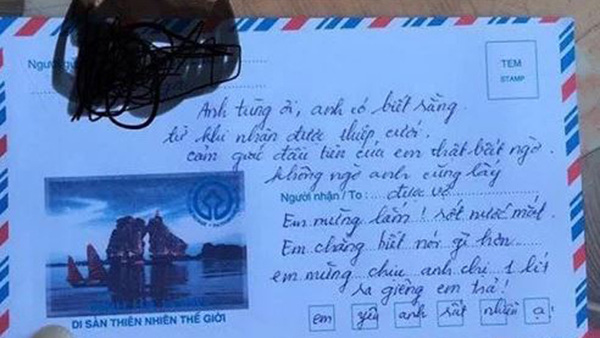 Người gửi
TEM
STAMP
Anh tùng ơi, anh có biết rằng
từ khi nhận được thiệp cưới.
cảm giác đầu tiên của em thật bất ngờ.
không ngờ anh cũng lấy
Người nhận / To : được vợ
Em mừng lắm ! rớt nước mắt.
Em chẳng biết nói gì hơn
em mừng chịu anh chị 1 lít
ra giêng em trả !
em yêu anh rất nhiều ạ!
DI SẢN THIÊN NHIÊN THẾ GIỚI